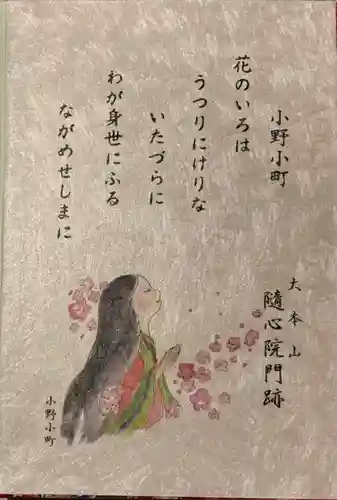 大本山
隨心院門跡
小野小町
花のいろは
うつりにけりな
いたづらに
わが身世にふる
ながめせしまに
小野小町